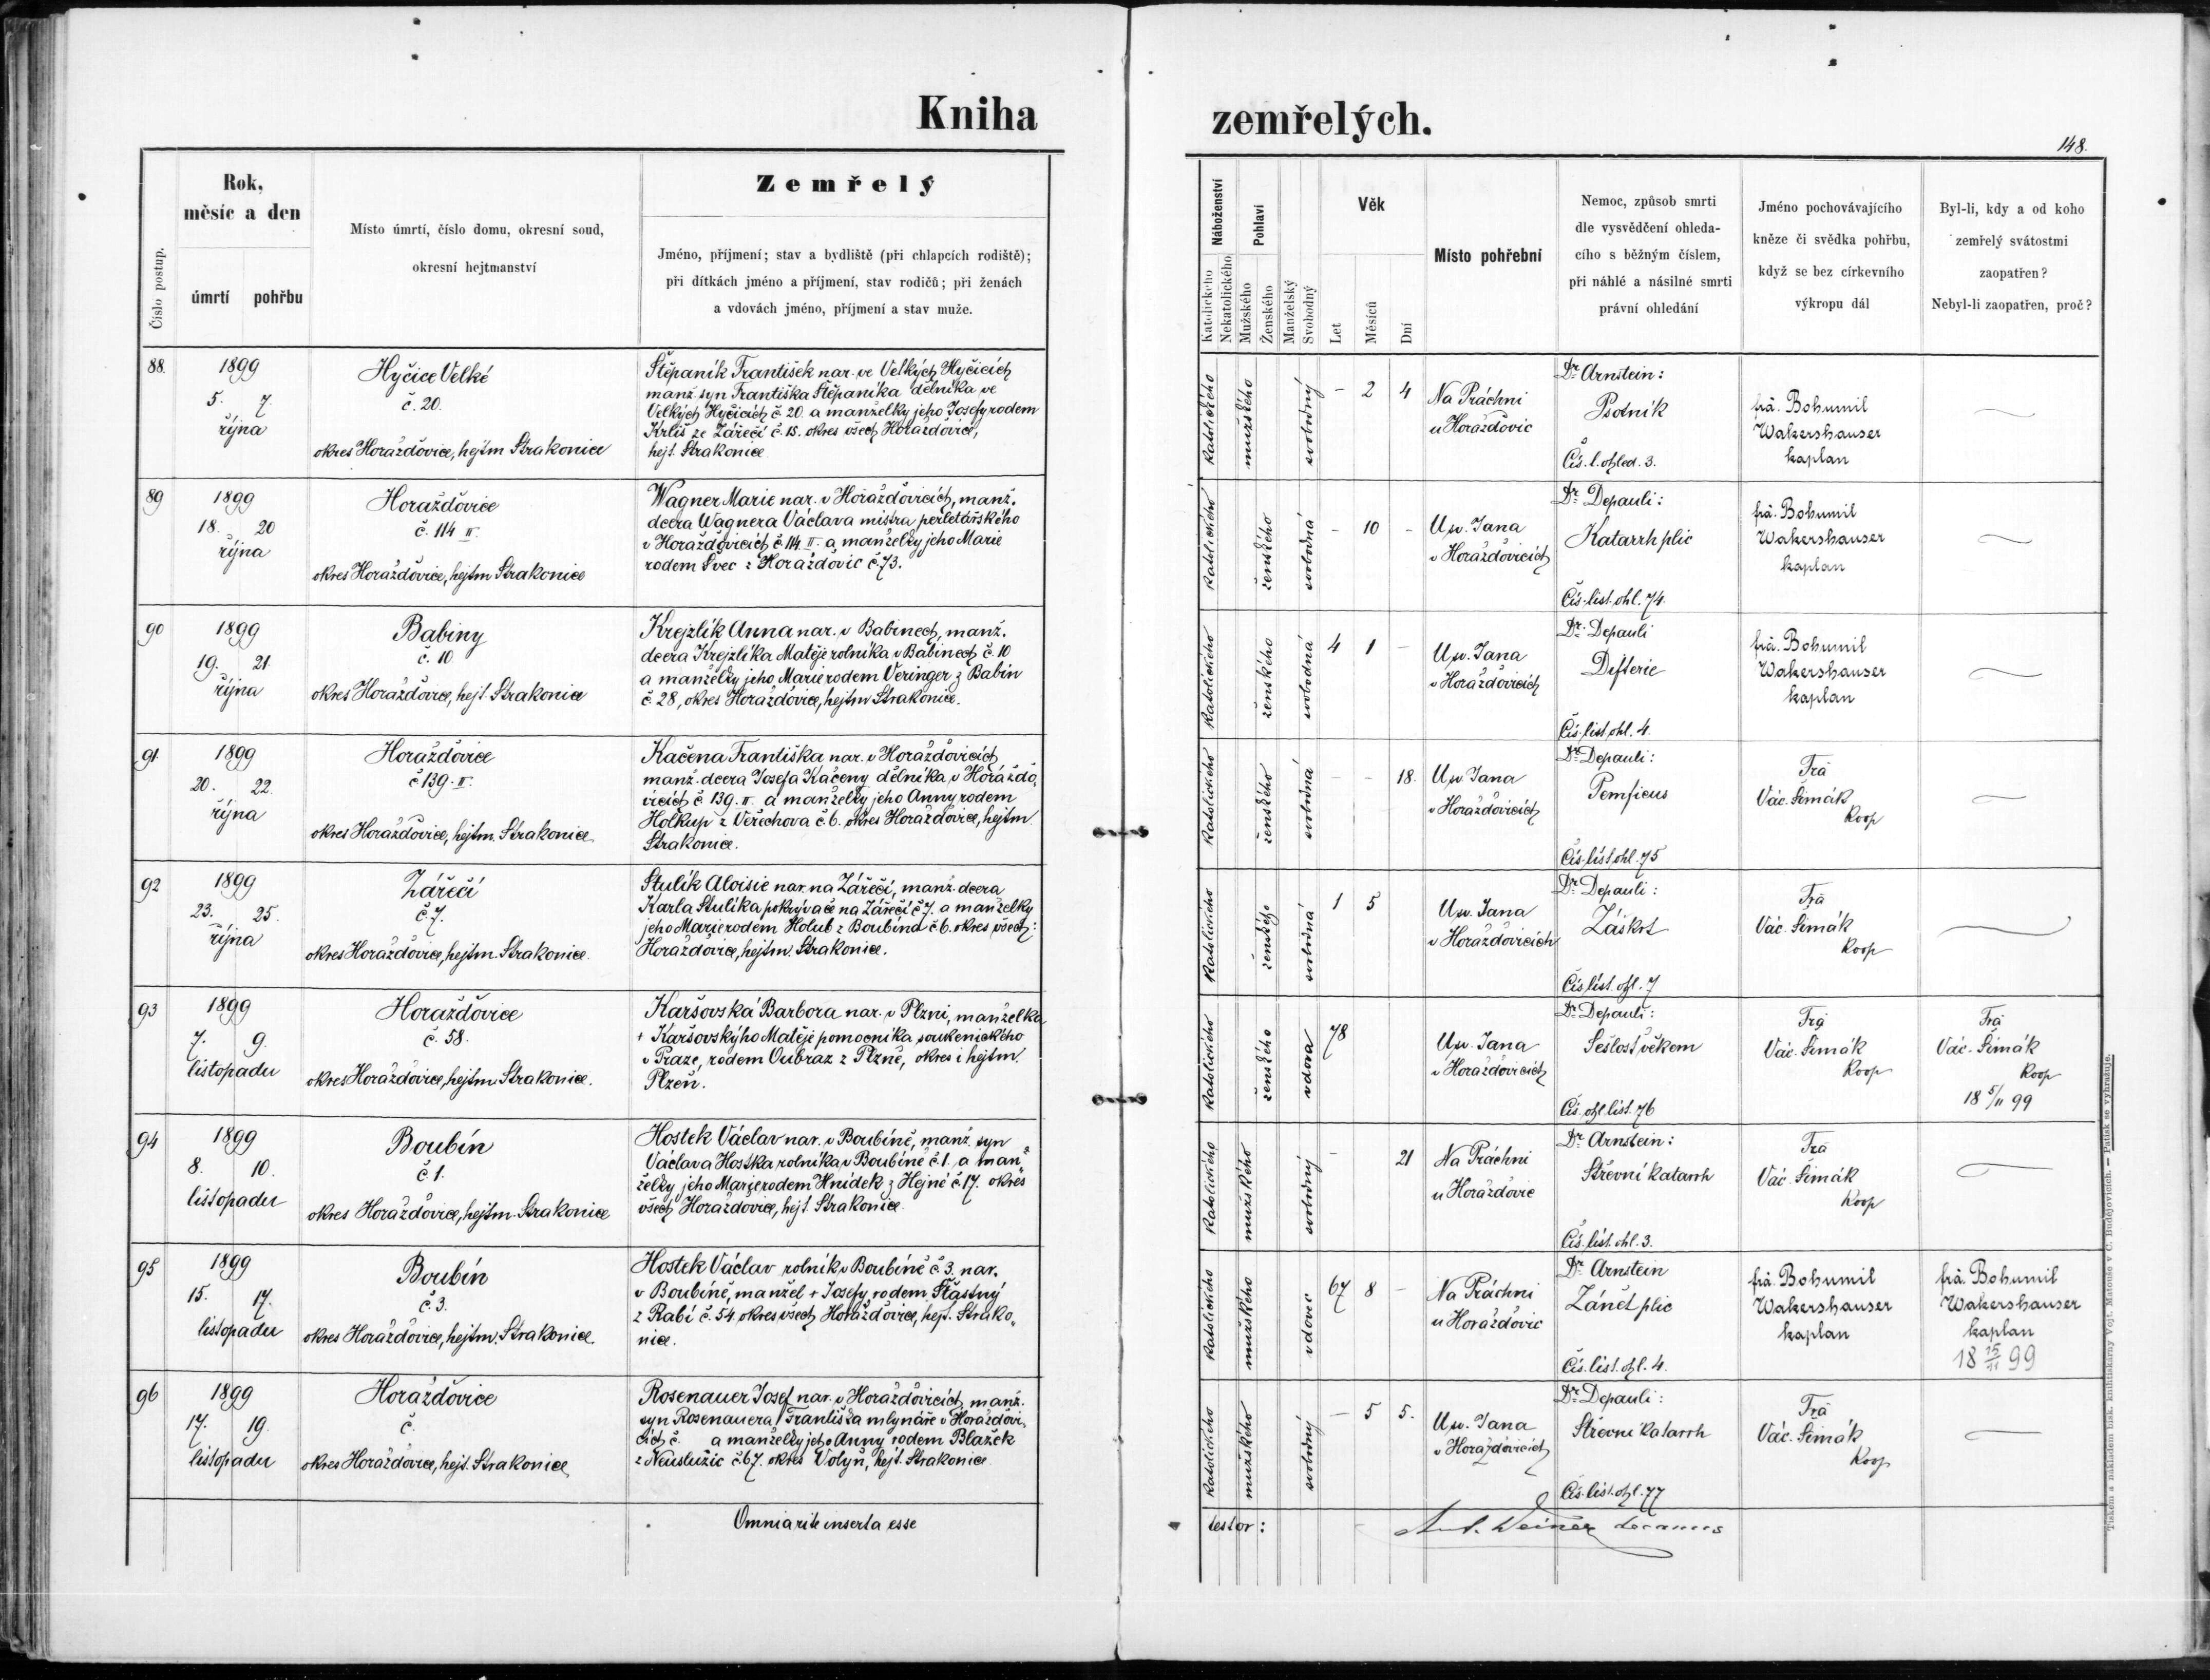 Kniha
zemřelých.
148.
Číslo postup.
Rok,
měsíc a den
úmrtí pohřbu
Místo úmrtí, číslo domu, okresní soud,
okresní hejtmanství
Zemřelý
Jméno, příjmení; stav a bydliště (při chlapcích rodiště);
při dítkách jméno a příjmení, stav rodičů; při ženách
a vdovách jméno, příjmení a stav muže.
Náboženství
Katolického
Nekatolického
Pohlaví
Mužského
Ženského
Manželský
Svobodný
Věk
Let
Měsíců
Dní
Místo pohřební
Nemoc, způsob smrti
dle vysvědčení ohleda-
cího s běžným číslem,
při náhlé a násilné smrti
právní ohledání
Jméno pochovávajícího
kněze či svědka pohřbu,
když se bez církevního
výkropu dál
Byl-li, kdy a od koho
zemřelý svátostmi
zaopatřen?
Nebyl-li zaopatřen, proč?
88.
1899
5. 7.
října
Hyčice Velké
č. 20.
okres Horažďovice, hejtm Strakonice
Štěpaník František nar. ve Velkých Hyčicích
manž. syn Františka Štěpaníka dělníka ve
Velkých Hyčicích č. 20. a manželky jeho Josefy rodem
Krliš ze Zářečí č. 15. okres všech Horažďovice,
hejt. Strakonice
katolického
mužského
svobodný
- 2 4
Na Práchni
u Horažďovic
Dr Arnstein:
Psotník
Čís. l. ohled. 3.
frà. Bohumil
Wakershauser
kaplan
89
1899
18. 20
října
Horažďovice
č. 114 II.
okres Horažďovice, hejtm Strakonice
Wagner Marie nar. v Horažďovicích, manž.
dcera Wagnera Václava mistra perletářského
v Horažďovicích č. 114 II. a manželky jeho Marie
rodem Švec z Horažďovic č. 73.
katolického
ženského
svobodná
- 10 -
U sv. Jana
v Horažďovicích
Dr Depauli:
Katarrh plic
Čís. list. ohl. 74.
frà. Bohumil
Wakershauser
kaplan
90
1899
19. 21.
října
Babiny
č. 10
okres Horažďovice, hejt. Strakonice
Krejzlík Anna nar. v Babinech, manž.
dcera Krejzlíka Matěje rolníka v Babinech č. 10
a manželky jeho Marie rodem Veringer z Babin
č. 28, okres Horažďovice, hejtm Strakonice.
katolického
ženského
svobodná
4 1 -
U sv. Jana
v Horažďovicích
Dr. Depauli
Difterie
Čís. list. ohl. 4.
frà. Bohumil
Wakershauser
kaplan
91.
1899
20. 22.
října
Horažďovice
č 139. II.
okres Horažďovice, hejtm. Strakonice
Kačena Františka nar. v Horažďovicích
manž. dcera Josefa Kačeny dělníka v Horažďo„
vicích č 139. II. a manželky jeho Anny rodem
Holkup z Veřechova č. 6. okres Horažďovice, hejtm
Strakonice.
katolického
ženského
svobodná
- - 18.
U sv. Jana
v Horažďovicích
Dr Depauli:
Pemficus
Čís. list. ohl. 75
Frà
Vác. Šimák
koop
92
1899
23. 25.
října
Zářečí
č. 7.
okres Horažďovice, hejtm. Strakonice.
Stulík Aloisie nar. na Zářečí, manž. dcera
Karla Stulíka pokrývače na Zářečí č 7. a manželky
jeho Marie rodem Holub z Boubína č. 6. okres všech:
Horažďovice, hejtm. Strakonice.
katolického
ženského
svobodná
1 5
U sv. Jana
v Horažďovicích
Dr Depauli:
Záškrt
Čís. list. ohl. 7
Frà
Vác. Šimák
koop
93
1899
7. 9.
listopadu
Horažďovice
č. 58.
okres Horažďovice, hejtm. Strakonice.
Karšovská Barbora nar. v Plzni, manželka
+ Karšovskýho Matěje pomocníka soukenického
v Praze, rodem Oubraz z Plzně, okres i hejtm.
Plzeň.
katolického
ženského
vdova
78
U sv. Jana
v Horažďovicích
Dr Depauli:
Sešlost věkem
Čís. ohl. list. 76
Frà
Vác. Šimák
koop
Frà
Vác. Šimák
koop
18 5/11 99
94
1899
8. 10.
listopadu
Boubín
č 1.
okres Horažďovice, hejtm. Strakonice
Hostek Václav nar. v Boubíně, manž. syn
Václava Hostka rolníka v Boubíně č. 1. a man„
želky jeho Marie rodem Hnídek z Hejné č. 17. okres
všech Horažďovice, hejt. Strakonice
katolického
mužského
svobodný
- 21
Na Práchni
u Horažďovic
Dr Arnstein:
Střevní katarrh
Čís. list. ohl. 3.
Frà
Vác. Šimák
koop
95
1899
15. 17.
listopadu
Boubín
č. 3.
okres Horažďovice, hejtm. Strakonice
Hostek Václav rolník v Boubíně č. 3. nar.
v Boubíně, manžel + Josefy rodem Šťastný
z Rabí č. 54 okres všech Horažďovice, hejt. Strako„
nice.
katolického
mužského
vdovec
67 8 -
Na Práchni
u Horažďovic
Dr Arnstein
Zánět plic
Čís. list. ohl. 4.
frà. Bohumil
Wakershauser
kaplan
frà. Bohumil
Wakershauser
kaplan
18 15/11 99
96
1899
17. 19.
listopadu
Horažďovice
č.
okres Horažďovice, hejt. Strakonice
Rosenauer Josef nar. v Horažďovicích manž.
syn Rosenauera Františka mlynáře v Horažďovi„
cích č. a manželky jeho Anny rodem Blažek
z Neuslužic č 67. okres Volyň, hejt. Strakonice
katolického
mužského
svobodný
- 5 5.
U sv. Jana
v Horažďovicích
Dr Depauli:
Střevní katarrh
Čís. list. ohl. 77
Frà
Vác. Šimák
koop
Omnia rite inserta esse
testor:
Ant. Weiner decanus
Tiskem a nákladem tisk. knihtiskárny Vojt. Matouše v Č. Budějovicích. — Patisk se vyhražuje.